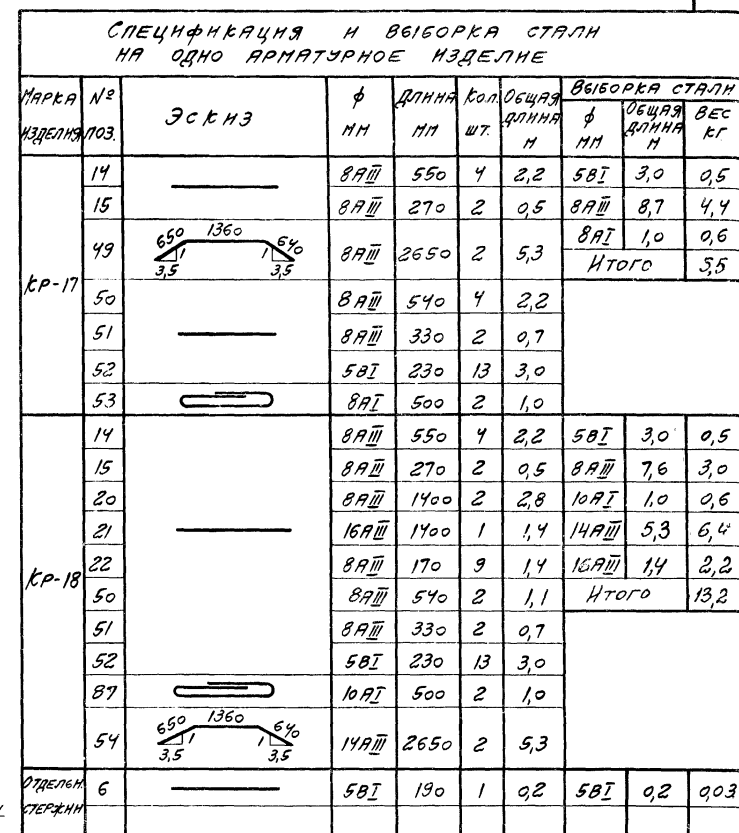 СПЕЦИФИКАЦИЯ И ВЫБОРКА СТАЛИ
НА ОДНО АРМАТУРНОЕ ИЗДЕЛИЕ
МАРКА ИЗДЕЛИЯ | № ПОЗ. | ЭСКИЗ | ф ММ | ДЛИНА ММ | КОЛ. ШТ. | ОБЩАЯ ДЛИНА М | ВЫБОРКА СТАЛИ
ф ММ | ОБЩАЯ ДЛИНА М | ВЕС КГ
КР-17
14 | 8AIII | 550 | 4 | 2,2 | 5ВI | 3,0 | 0,5
15 | 8AIII | 270 | 2 | 0,5 | 8AIII | 8,7 | 4,4
49 | 650 1360 640 1 1 3,5 3,5 | 8AIII | 2650 | 2 | 5,3 | 8AI | 1,0 | 0,6
ИТОГО | 5,5
50 | 8AIII | 540 | 4 | 2,2
51 | 8AIII | 330 | 2 | 0,7
52 | 5ВI | 230 | 13 | 3,0
53 | 8AI | 500 | 2 | 1,0
КР-18
14 | 8AIII | 550 | 4 | 2,2 | 5ВI | 3,0 | 0,5
15 | 8AIII | 270 | 2 | 0,5 | 8AIII | 7,6 | 3,0
20 | 8AIII | 1400 | 2 | 2,8 | 10AI | 1,0 | 0,6
21 | 16AIII | 1400 | 1 | 1,4 | 14AIII | 5,3 | 6,4
22 | 8AIII | 170 | 9 | 1,4 | 16AIII | 1,4 | 2,2
50 | 8AIII | 540 | 2 | 1,1 | ИТОГО | 13,2
51 | 8AIII | 330 | 2 | 0,7
52 | 5ВI | 230 | 13 | 3,0
87 | 10AI | 500 | 2 | 1,0
54 | 650 1360 640 1 1 3,5 3,5 | 14AIII | 2650 | 2 | 5,3
ОТДЕЛЬН. СТЕРЖНИ | 6 | 5ВI | 190 | 1 | 0,2 | 5ВI | 0,2 | 0,03